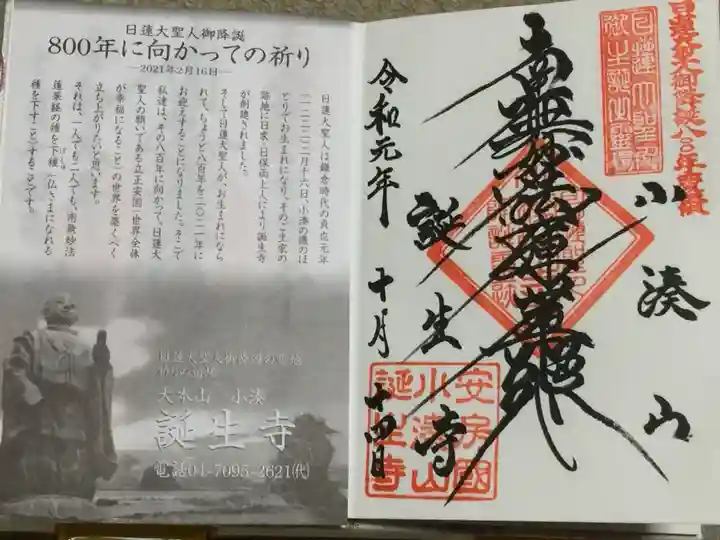 日蓮大聖人御降誕
800年に向かっての祈り
―2021年2月16日―
日蓮大聖人は鎌倉時代の貞応元年
(一二二二)二月十六日、小湊の漁のほ
とりでお生まれになり、そのご生家の
跡地に日家・日保両上人により誕生寺
が創建されました。
そして日蓮大聖人が、お生まれになら
れて、ちょうど八百年を二〇二一年に
お迎えすることになりました。そこで
私達は、その八百年に向かって、日蓮大
聖人の願いである立正安国(世界全体
が幸福になること)の世界を築くべく
立ち上がりたいと思います。
それは、一人でも二人でも、南無妙法
蓮華経の種を下種(仏さまになれる
種を下すこと)することです。
げしゅ
日蓮大聖人御降誕の聖地
大本山 小湊
誕生寺
電話04-7095-2621(代)
日蓮大聖人御降誕八〇〇年慶讃
日蓮大聖人
御生誕之霊場
小湊山
南無妙法蓮華経
誕生寺
安房國
小湊山
誕生寺
令和元年 十月 十四日